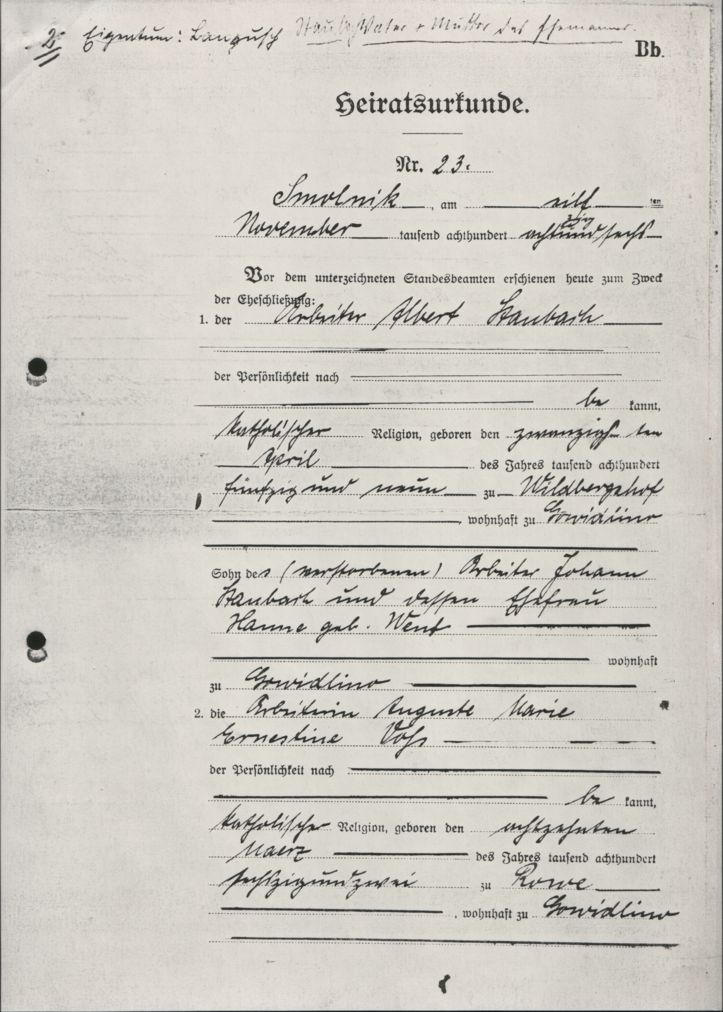 2. Eigentum: Langusch Vater + Mutter des Ehemannes.
Bb.
Heiratsurkunde.
Nr. 23.
Smolnik, am eilf ten
November tausend achthundert achtzigundsechs
Vor dem unterzeichneten Standesbeamten erschienen heute zum Zweck
der Eheschließung:
1. der Arbeiter Albert Staubach
der Persönlichkeit nach
be kannt,
katholischer Religion, geboren den zwanzigsten
April des Jahres tausend achthundert
fünfzig und neun zu Wildbergshof
, wohnhaft zu Gowidlino
Sohn des (verstorbenen) Arbeiter Johann
Staubach und dessen Ehefrau
Hanne geb. Went
wohnhaft
zu Gowidlino
2. die Arbeiterin Auguste Marie
Ernestine Voss
der Persönlichkeit nach
be kannt,
katholischer Religion, geboren den achtzehnten
Maerz des Jahres tausend achthundert
sechszigundzwei zu Rowe
, wohnhaft zu Gowidlino